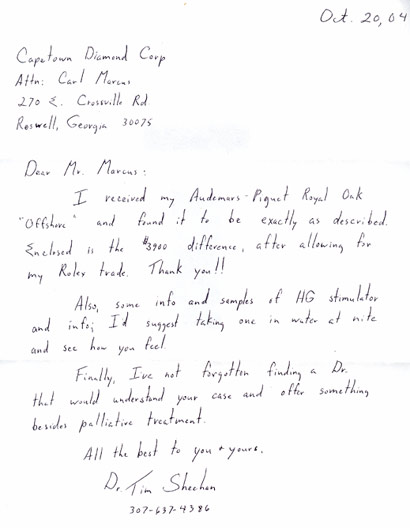 Oct. 20, 04
Capetown Diamond Corp
Attn: Carl Marcus
270 E. Crossville Rd.
Roswell, Georgia 30075
Dear Mr. Marcus:
I received my Audemars-Piguet Royal Oak
"Offshore" and found it to be exactly as described.
Enclosed is the $3900 difference, after allowing for
my Rolex trade. Thank you!!
Also, some info and samples of HG stimulator
and info; I'd suggest taking one in water at nite
and see how you feel
Finally, I've not forgotten finding a Dr.
that would understand your case and offer something
besides palliative treatment.
All the best to you + yours.
Dr. Tim Sheehan
307-637-4386